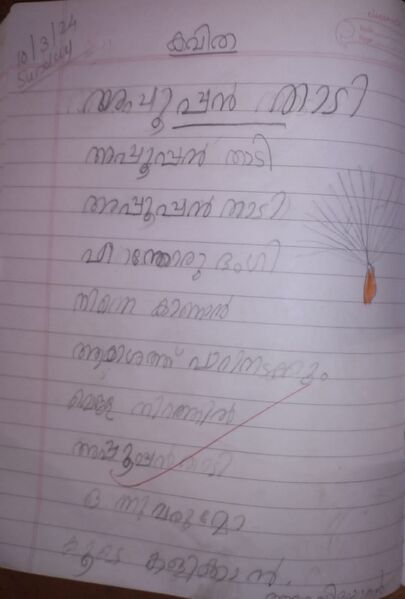 10/3/24
Sunday
കവിത
അപ്പൂപ്പൻ താടി
അപ്പൂപ്പൻ താടി
അപ്പൂപ്പൻ താടി
എന്തൊരു ഭംഗി
നിന്നെ കാണാൻ
ആകാശത്ത് പാറിനടക്കും
വെള്ള നിറത്തിൽ
അപ്പൂപ്പൻ താടി
ഒന്നു വരുമോ
കൂടെ കളിക്കാൻ.